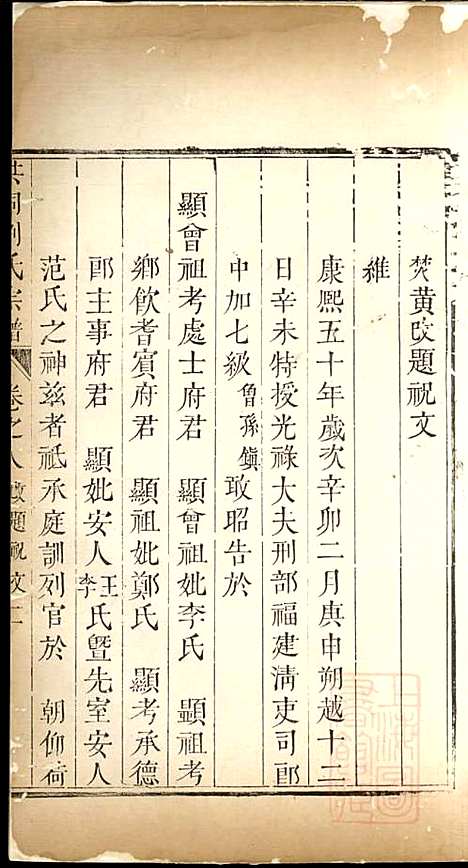 焚黄改題祝文
維
康熙五十年歲次辛卯二月庚申朔越十二
日辛未特授光祿大夫刑部福建清吏司郎
中加七級魯孫鎮敢昭告於
顯曾祖考處士府君　顯曾祖妣李氏　顯祖考
鄉飲耆賓府君　顯祖妣鄭氏　顯考承德
郎主事府君　顯妣安人王李氏暨先室安人
范氏之神兹者祗承庭訓列官於　朝仰荷
洪洞劉氏宗譜　卷之八　改題祝文　二